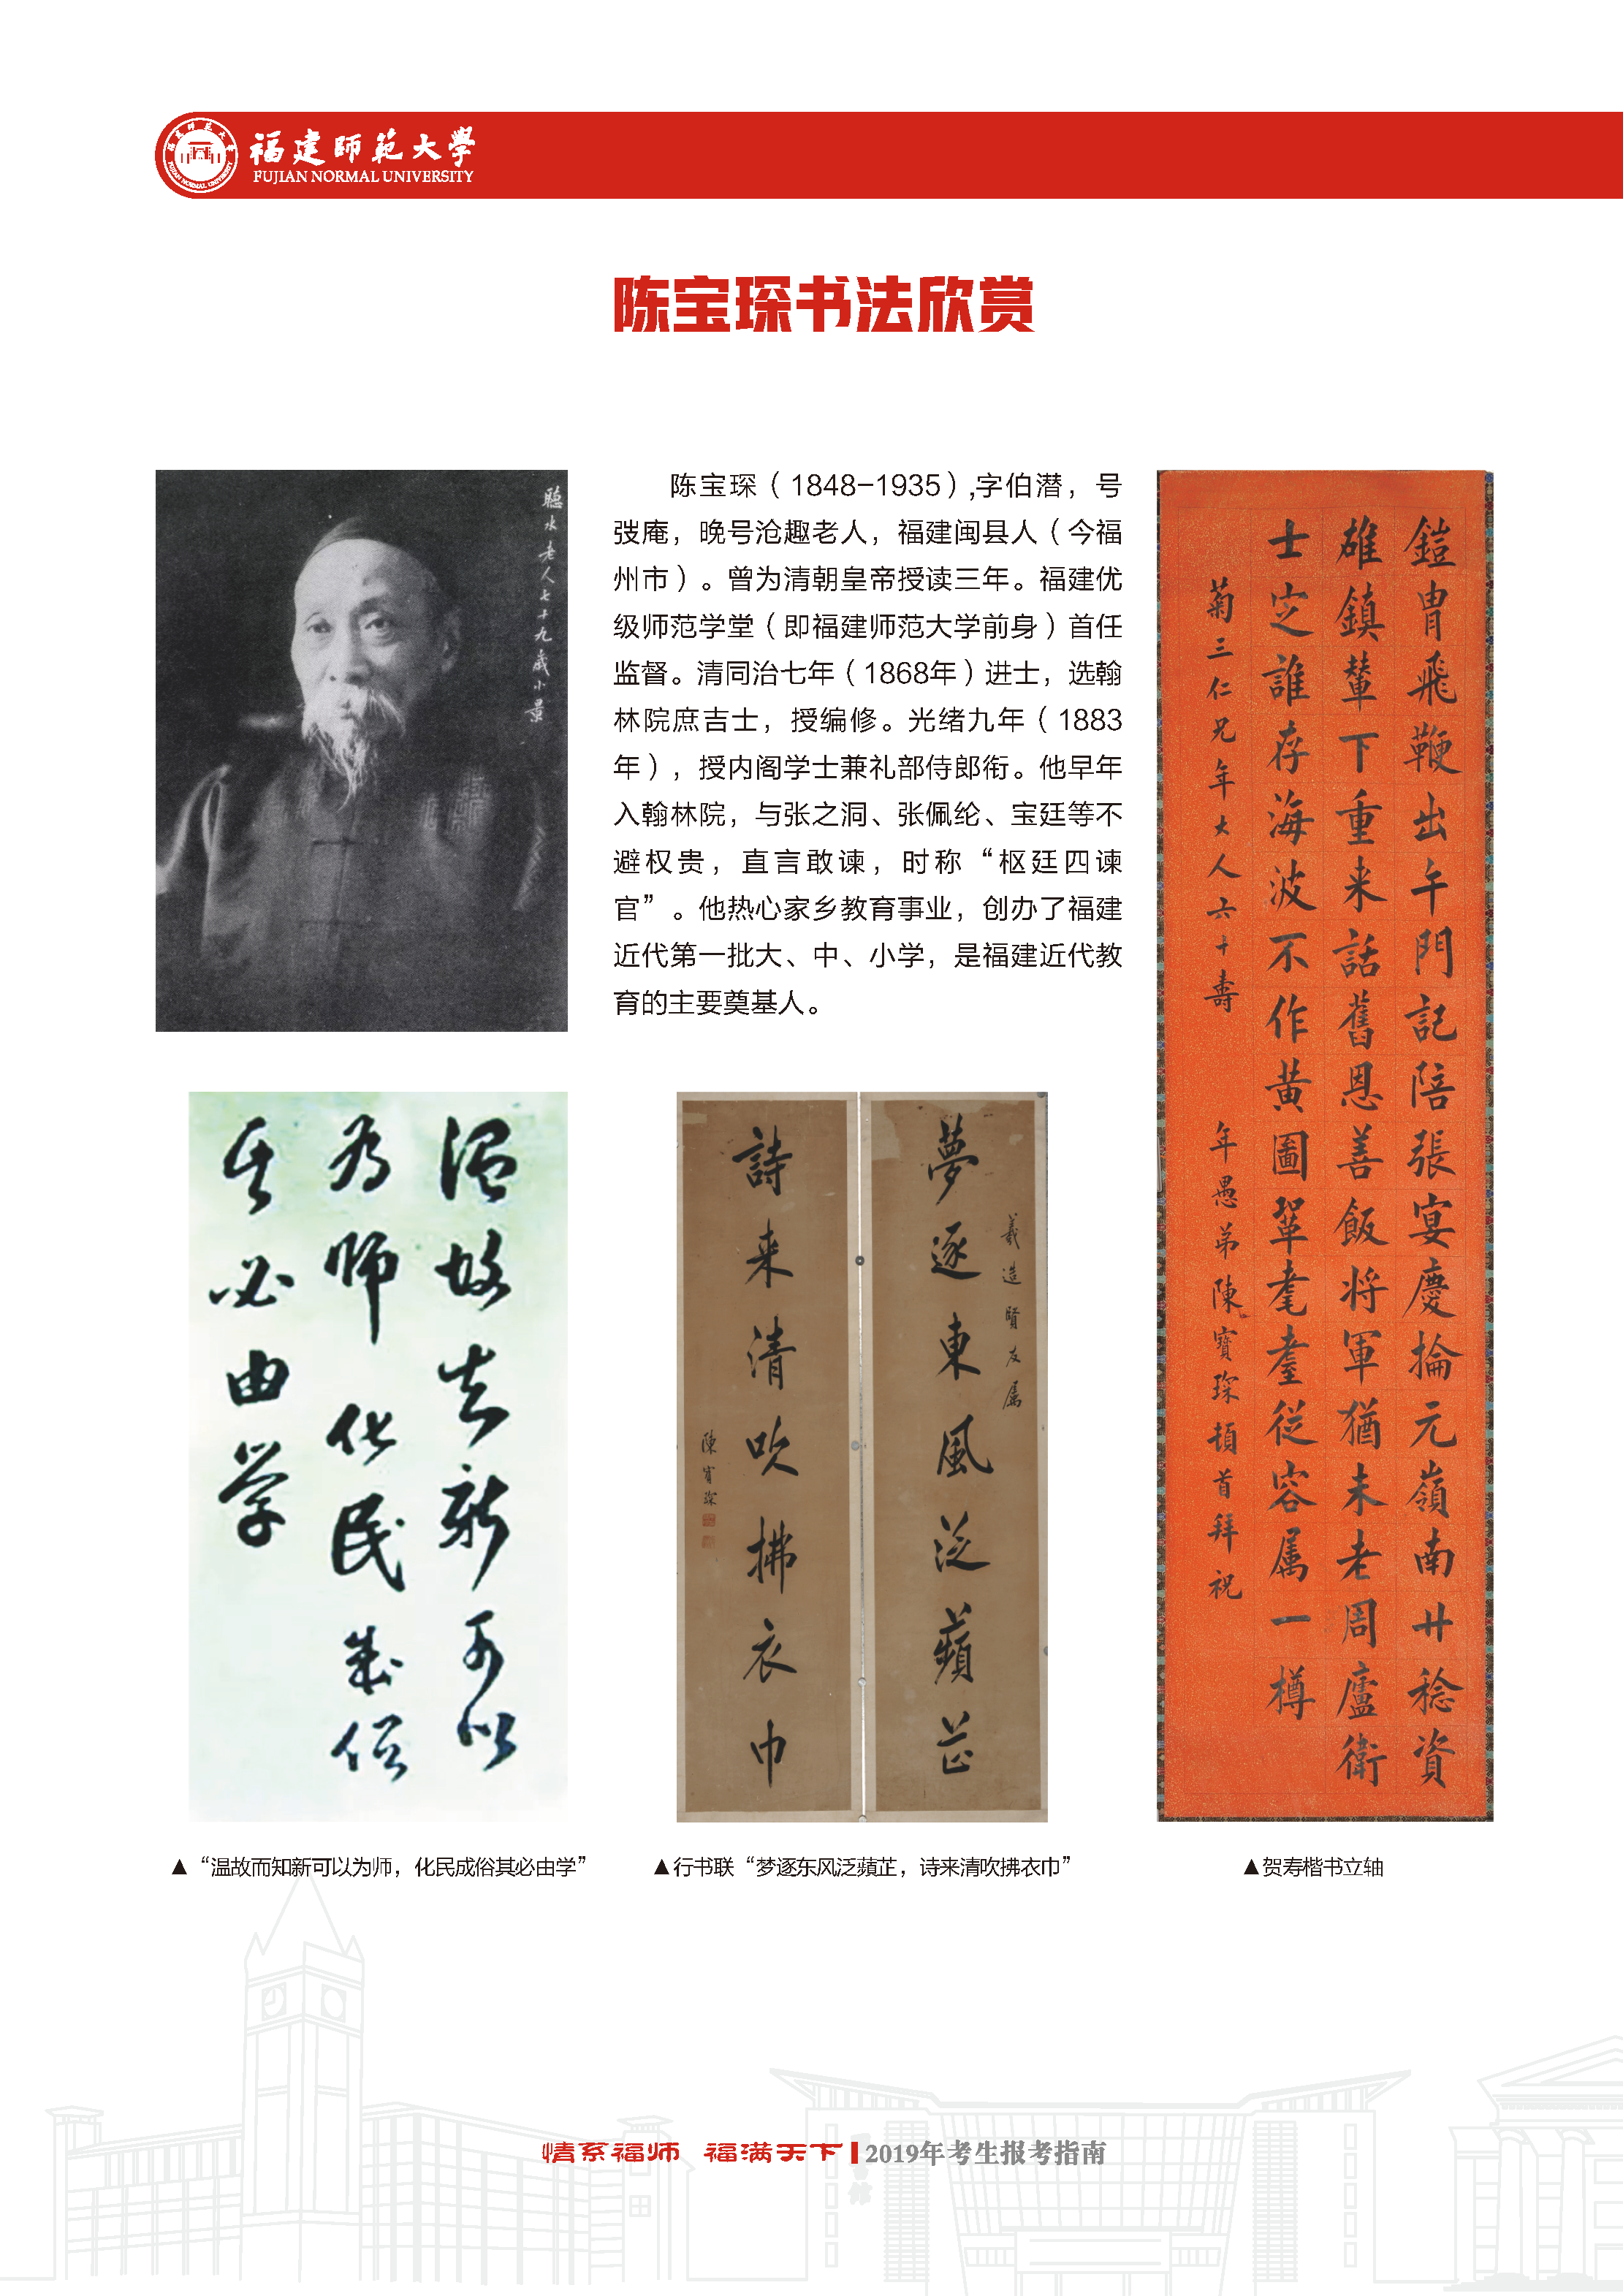 福建師範大學
FUJIAN NORMAL UNIVERSITY
陈宝琛书法欣赏
聽水老人七十九歲小景
陈宝琛（1848-1935）,字伯潜，号
弢庵，晚号沧趣老人，福建闽县人（今福
州市）。曾为清朝皇帝授读三年。福建优
级师范学堂（即福建师范大学前身）首任
监督。清同治七年（1868年）进士，选翰
林院庶吉士，授编修。光绪九年（1883
年），授内阁学士兼礼部侍郎衔。他早年
入翰林院，与张之洞、张佩纶、宝廷等不
避权贵，直言敢谏，时称“枢廷四谏
官”。他热心家乡教育事业，创办了福建
近代第一批大、中、小学，是福建近代教
育的主要奠基人。
鎧胄飛鞭出午門記陪張宴慶掄元嶺南廿稔資
雄鎮輦下重来話舊恩善飯将軍猶未老周廬衛
士定誰存海波不作黄圖鞏耄耋從容属一樽
菊三仁兄年大人六十壽
年愚弟陳寶琛頓首拜祝
温故知新可以
为师化民成俗
其必由学
羲造賢友属
夢逐東風泛蘋芷
詩来清吹拂衣巾
陳寶琛
▲“温故而知新可以为师，化民成俗其必由学”
▲行书联“梦逐东风泛蘋芷，诗来清吹拂衣巾”
▲贺寿楷书立轴
情系福师 福满天下 2019年考生报考指南